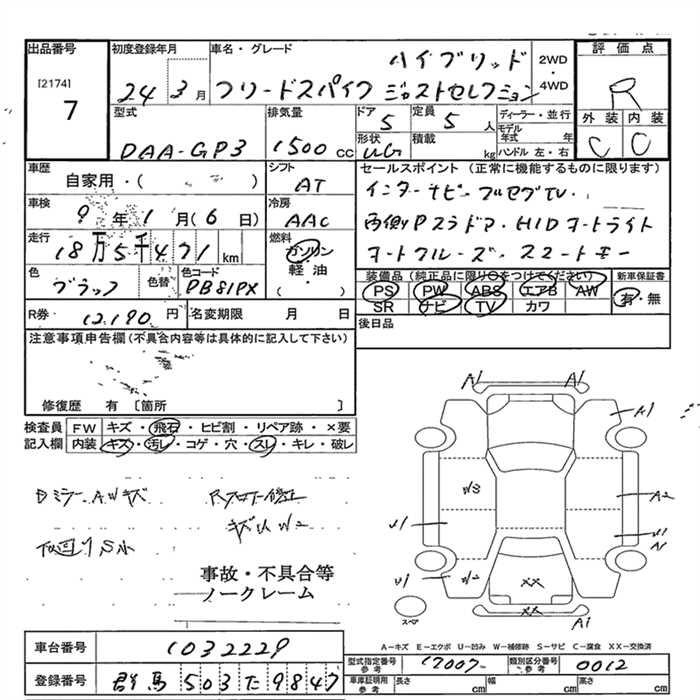 出品番号
[2174]
7
初度登録年月
24 3月
車名・グレード
ハイブリッド
フリードスパイク ジャストセレクション
2WD
・
4WD
評価点
R
外装 内装
C C
型式
DAA-GP3
排気量
1500 CC
ドア
5
定員
5 人
ディーラー・並行
モデル年式 年
形状
UG
積載
kg
ハンドル 左・右
車歴
自家用・( )
シフト
AT
車検
9年1月(6日)
冷房
AAC
走行
18万5千471km
燃料
ガソリン
軽油
( )
色
ブラック
色替
色コード
PB81PX
R券
12,190円
名変期限 月 日
セールスポイント(正常に機能するものに限ります)
インターナビ・フルセグTV・
両側Pスラドア・HIDオートライト
オートクルーズ・スマートキー
装備品(純正品に限り○をつけてください)
PS PW ABS エアB AW
SR ナビ TV カワ
新車保証書
有・無
後日品
注意事項申告欄(不具合内容等は具体的に記入して下さい)
修復歴 有 [箇所 ]
検査員記入欄
FW キズ・飛石・ヒビ割・リペア跡・×要
内装 キズ・汚レ・コゲ・穴・スレ・キレ・破レ
Dミラー、AWキズ
キズUW2
事故・不具合等
ノークレーム
A1 A1
A1
W3
A2
U1
U1
A1
U1
W2
XX
XX
A1
スペア
A-キズ E-エクボ U-凹み W-補修跡 S-サビ C-腐食 XX-交換済
車台番号
1032229
登録番号
群馬 503 た 9847
型式指定番号
参考
17007
類別区分番号
参考
0012
車庫証明用
参考
長さ cm 幅 cm 高さ cm